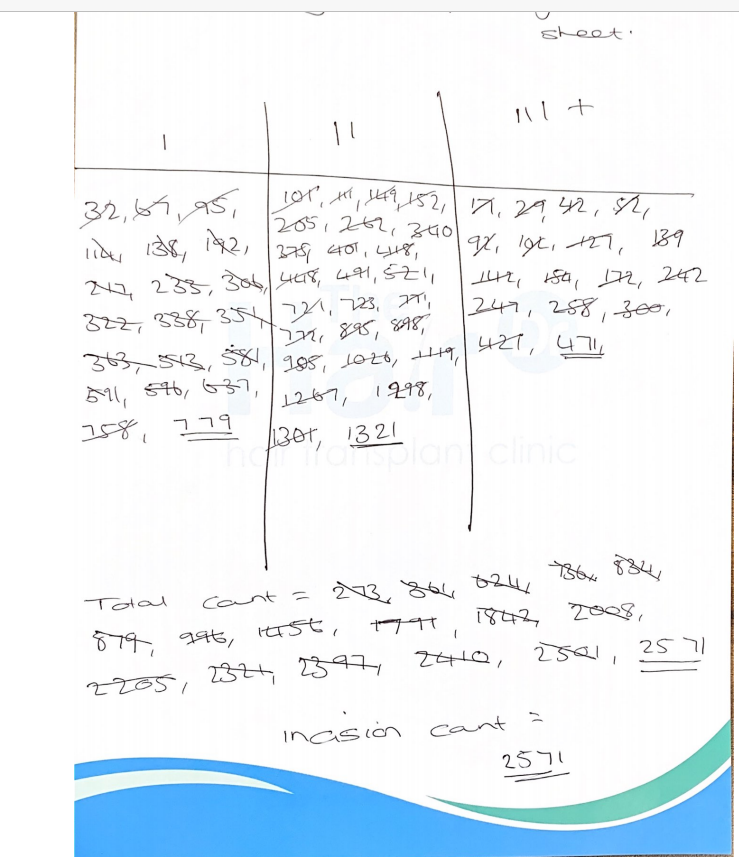 sheet.
I II III +
32, 67, 95,
114, 138, 192,
217, 233, 306,
322, 338, 351,
363, 513, 581,
591, 596, 637,
758, 779
101, 111, 149, 152,
205, 262, 340
375, 401, 418,
448, 491, 521,
721, 723, 771,
772, 895, 898,
985, 1026, 1119,
1267, 1298,
1301, 1321
17, 29, 42, 52,
92, 127, 139
142, 154, 172, 242
247, 258, 300,
427, 471,
hair transplant clinic
Total count = 273, 361, 624, 736, 834,
879, 996, 1456, 1791, 1842, 2008,
2205, 2321, 2397, 2410, 2501, 2571
incision count =
2571